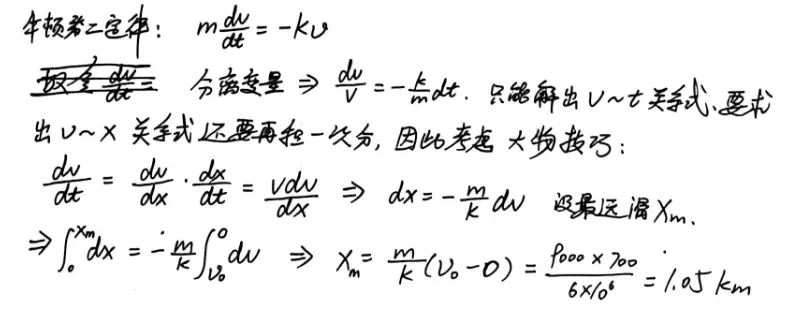 牛顿第二定律： m dv/dt = -kv
分离变量 ⇒ dv/v = -k/m dt. 只能解出 v~t 关系式、要求
出 v~x 关系式还要再积一次分, 因此考虑 大物技巧：
dv/dt = dv/dx · dx/dt = vdv/dx ⇒ dx = -m/k dv 设最远滑 Xm.
⇒ ∫₀^Xm dx = -m/k ∫_v₀^0 dv ⇒ Xm = m/k (v₀-0) = 9000×700/6×10⁶ = 1.05 km